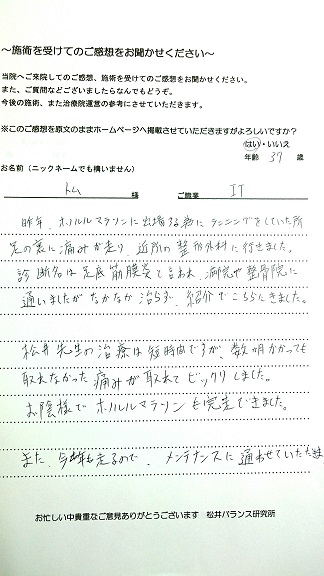 ～施術を受けてのご感想をお聞かせください～
当院へご来院してのご感想、施術を受けてのご感想をお聞かせください。
また、ご質問などございましたらなんでもどうぞ。
今後の施術、また治療院運営の参考にさせていただきます。
※このご感想を原文のままホームページへ掲載させていただきますがよろしいですか？
はい・いいえ
年齢 37 歳
お名前（ニックネームでも構いません）
様 ご職業 IT
昨年、ホノルルマラソンに出場する為にランニングをしていた所
足の裏に痛みが走り、近所の整形外科に行きました。
診断名は足底筋膜炎と言われ、病院や整骨院に
通いましたがなかなか治らず、紹介でこちらにきました。
松井先生の治療は短時間ですが、数ヶ月かかっても
取れなかった痛みが取れてビックリしました。
お陰様でホノルルマラソンも完走できました。
また、今年も走るので、メンテナンスに通わせていただきます
お忙しい中貴重なご意見ありがとうございます 松井バランス研究所